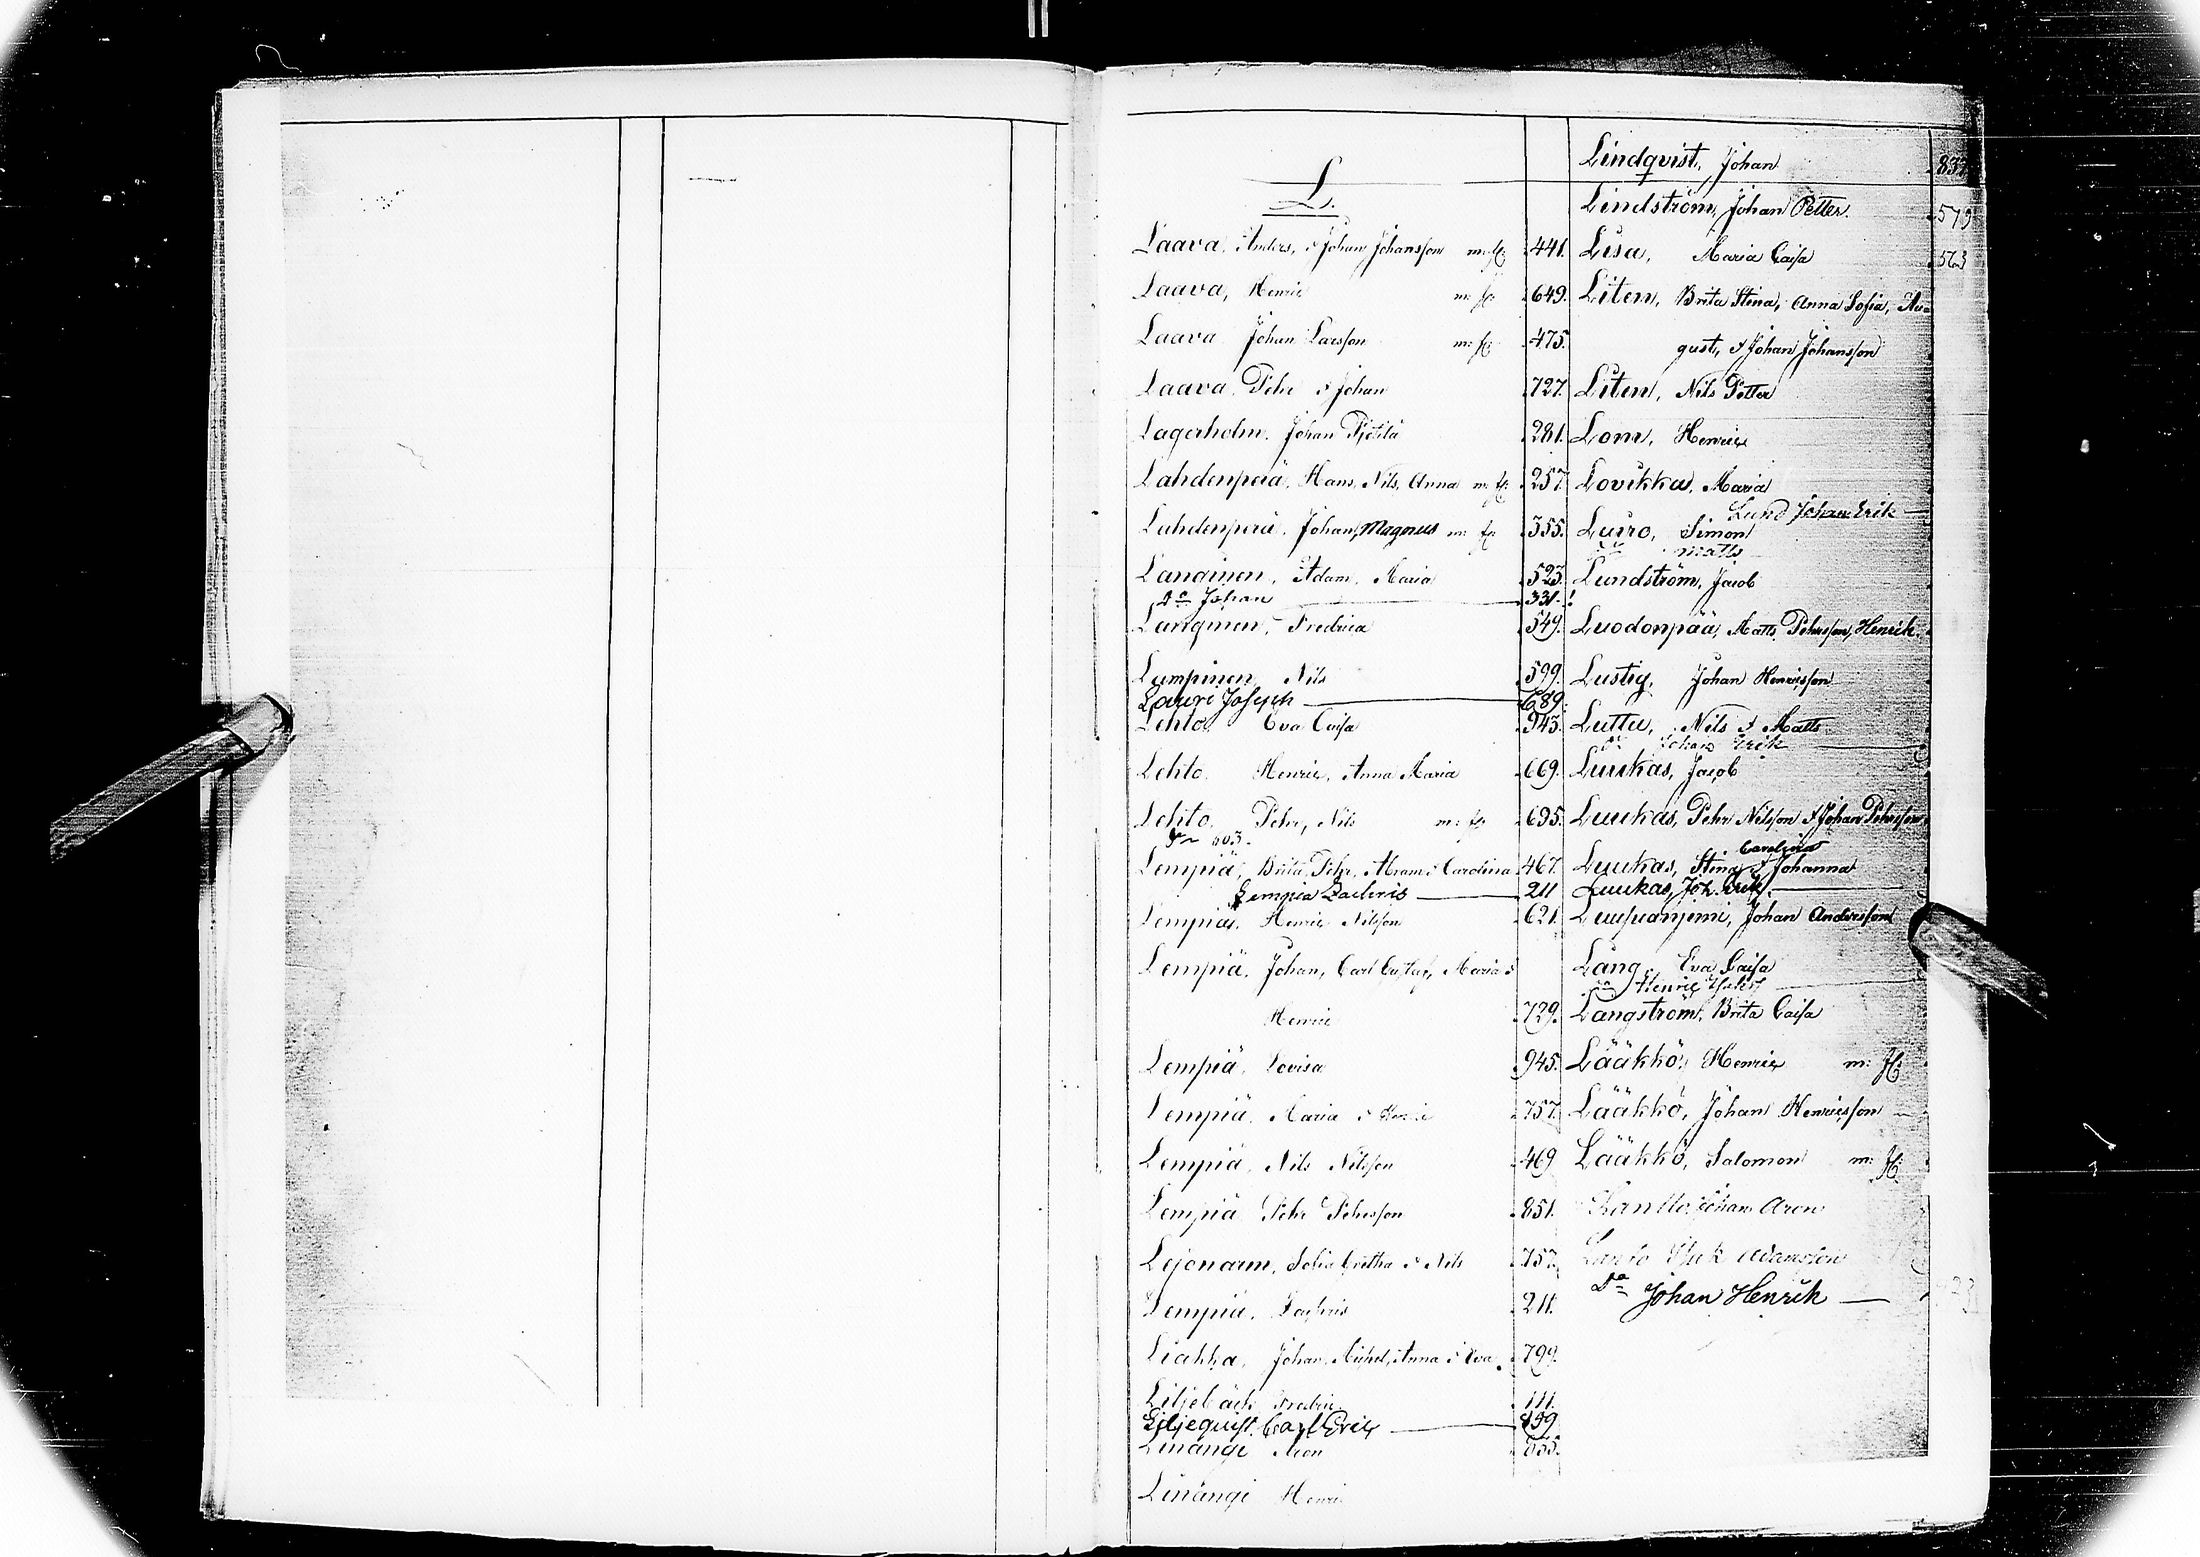 L.
Laava, Anders, & Johan Johansson m: fl: 441.
Laava, Henric m: fl: 649.
Laava Johan Larsson m: fl: 475.
Laava, Pehr & Johan 727.
Lagerholm, Johan 281.
Lahdenperä, Hans, Nils, Anna m: fl: 257
Lahdenperä, Johan, Magnus m: fl: 355.
Langinen, Adam, Maria 523.
Do Johan 331.
Langinen, Fredrica 549.
Lampinen, Nils 599.
Lauri Joseph 689
Lehto, Eva Caisa 943.
Lehto, Henric, Anna Maria 669.
Lehto, Pehr, Nils m: fl: 695.
Lempiä, Brita, Pehr, Abram & Carolina 467.
Lempiä Zachris 211
Lempiä, Henric Nilsson 621.
Lempiä, Johan, Carl Gustaf, Maria &
Henric 729.
Lempiä, Lovisa 945.
Lempiä, Maria & Henric 757.
Lempiä, Nils Nilsson 469
Lempiä Pehr Pehrsson 851.
Lejonarm, Sofia Gretha & Nils 757.
Lempiä, Zachris 211.
Liakka, Johan, Michel, Anna & Eva 799.
Liljebäck Fredric 111.
Liljequist Carl Eric 859
Linangi Aron 855.
Linangi Henric
Lindqvist, Johan
Lindström, Johan Petter 579
Lisa, Maria Caisa 563
Liten, Brita Stina, Anna Sofia, Au-
gust, & Johan Johansson
Liten, Nils Petter
Lom, Henric
Lovikka, Maria
Lund Johan Erik
Luiro, Simon
Matts
Lundström, Jacob
Luodonpää, Matts Pehrsson, Henrik
Lustig, Johan Henricsson
Luttu, Nils & Matts
Do Johan Erik
Luukas, Jacob
Luukas, Pehr Nilsson & Johan Pehrsson
Carolina
Luukas, Stina & Johanna
Luukas, Joh. Erik
Luusuaniemi, Johan Andersson
Lång, Eva Caisa
Do Henric
Långström, Brita Caisa
Lääkkö, Henric m: fl:
Lääkkö, Johan Henricsson
Lääkkö, Salomon m: fl:
Johan Aron
Erik Adamsson
Do Johan Henrik